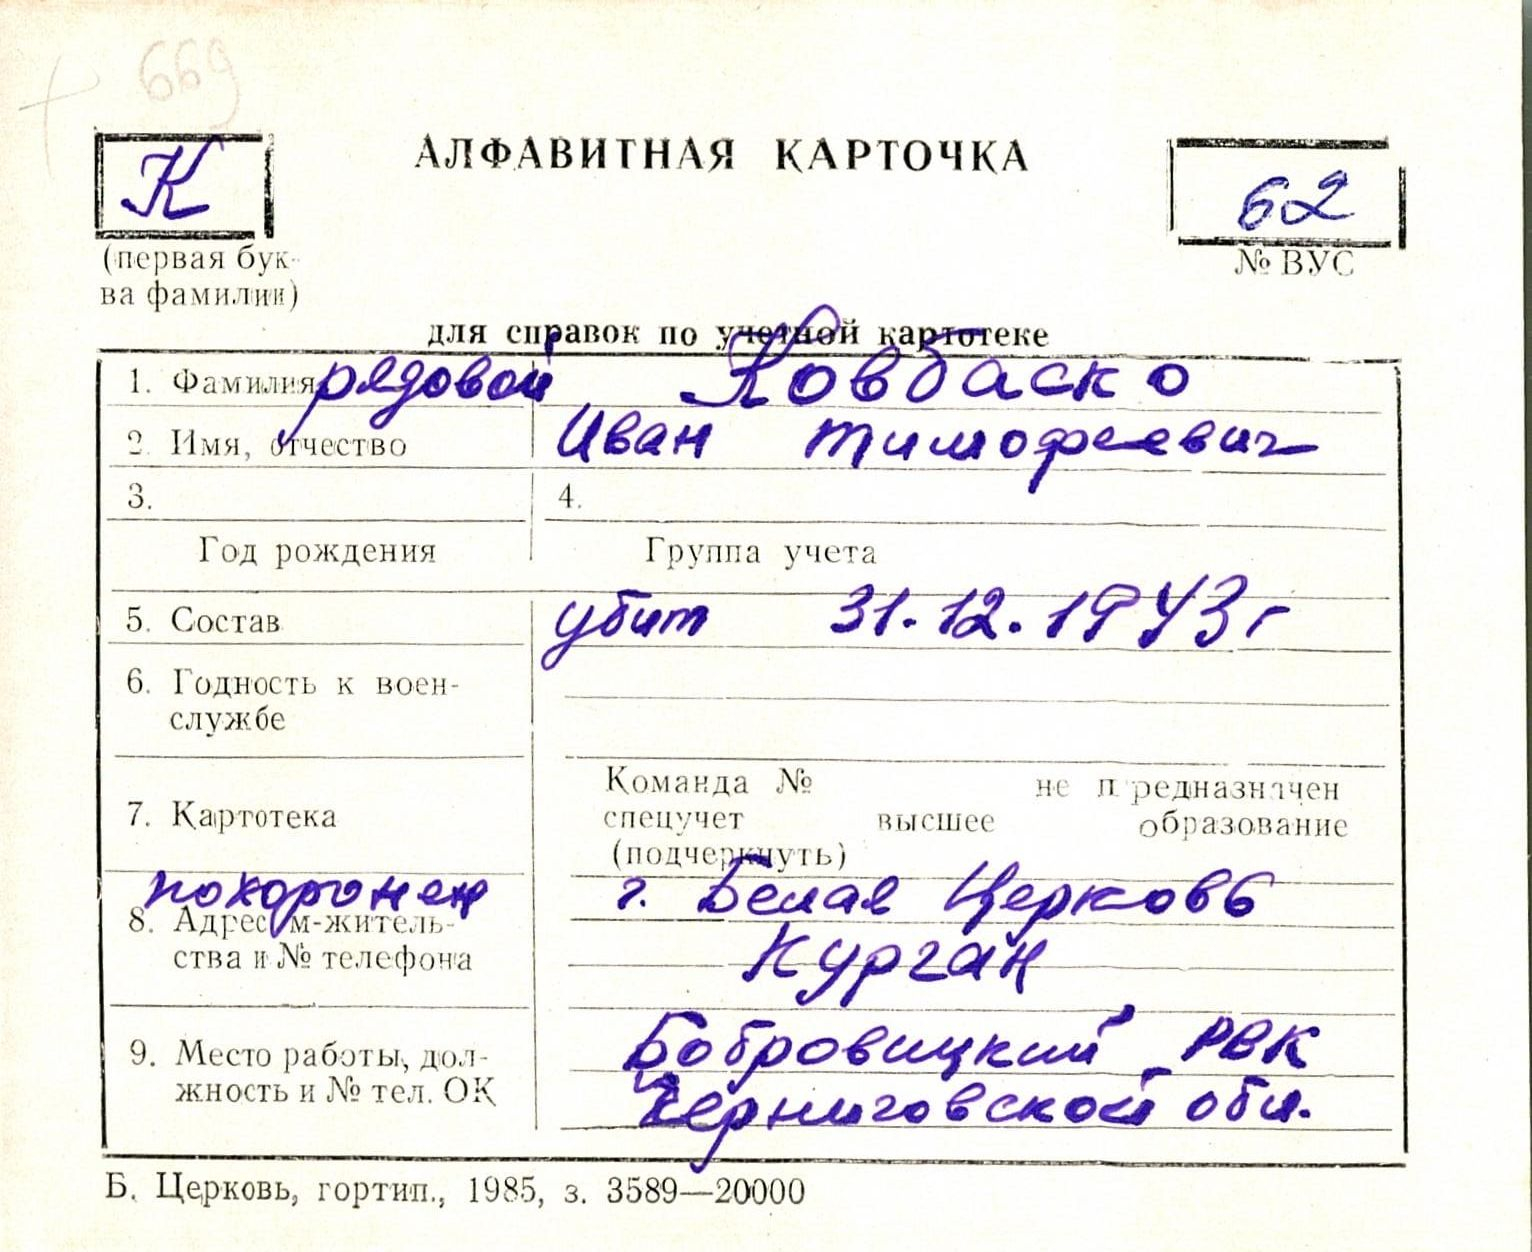 669
К
АЛФАВИТНАЯ КАРТОЧКА
62
(первая бук-
ва фамилии)
№ ВУС
для справок по учетной картотеке
1. Фамилия рядовой Ковбаско
2. Имя, отчество Иван Тимофеевич
3. 4.
Год рождения Группа учета
5. Состав убит 31.12.1943 г
6. Годность к воен-
службе
7. Картотека
Команда № не предназначен
спецучет высшее образование
(подчеркнуть)
похоронен г. Белая Церковь
8. Адрес м-житель-
ства и № телефона
Курган
9. Место работы, дол-
жность и № тел. ОК
Бобровицкий РВК
Черниговской обл.
Б. Церковь, гортип., 1985, з. 3589—20000